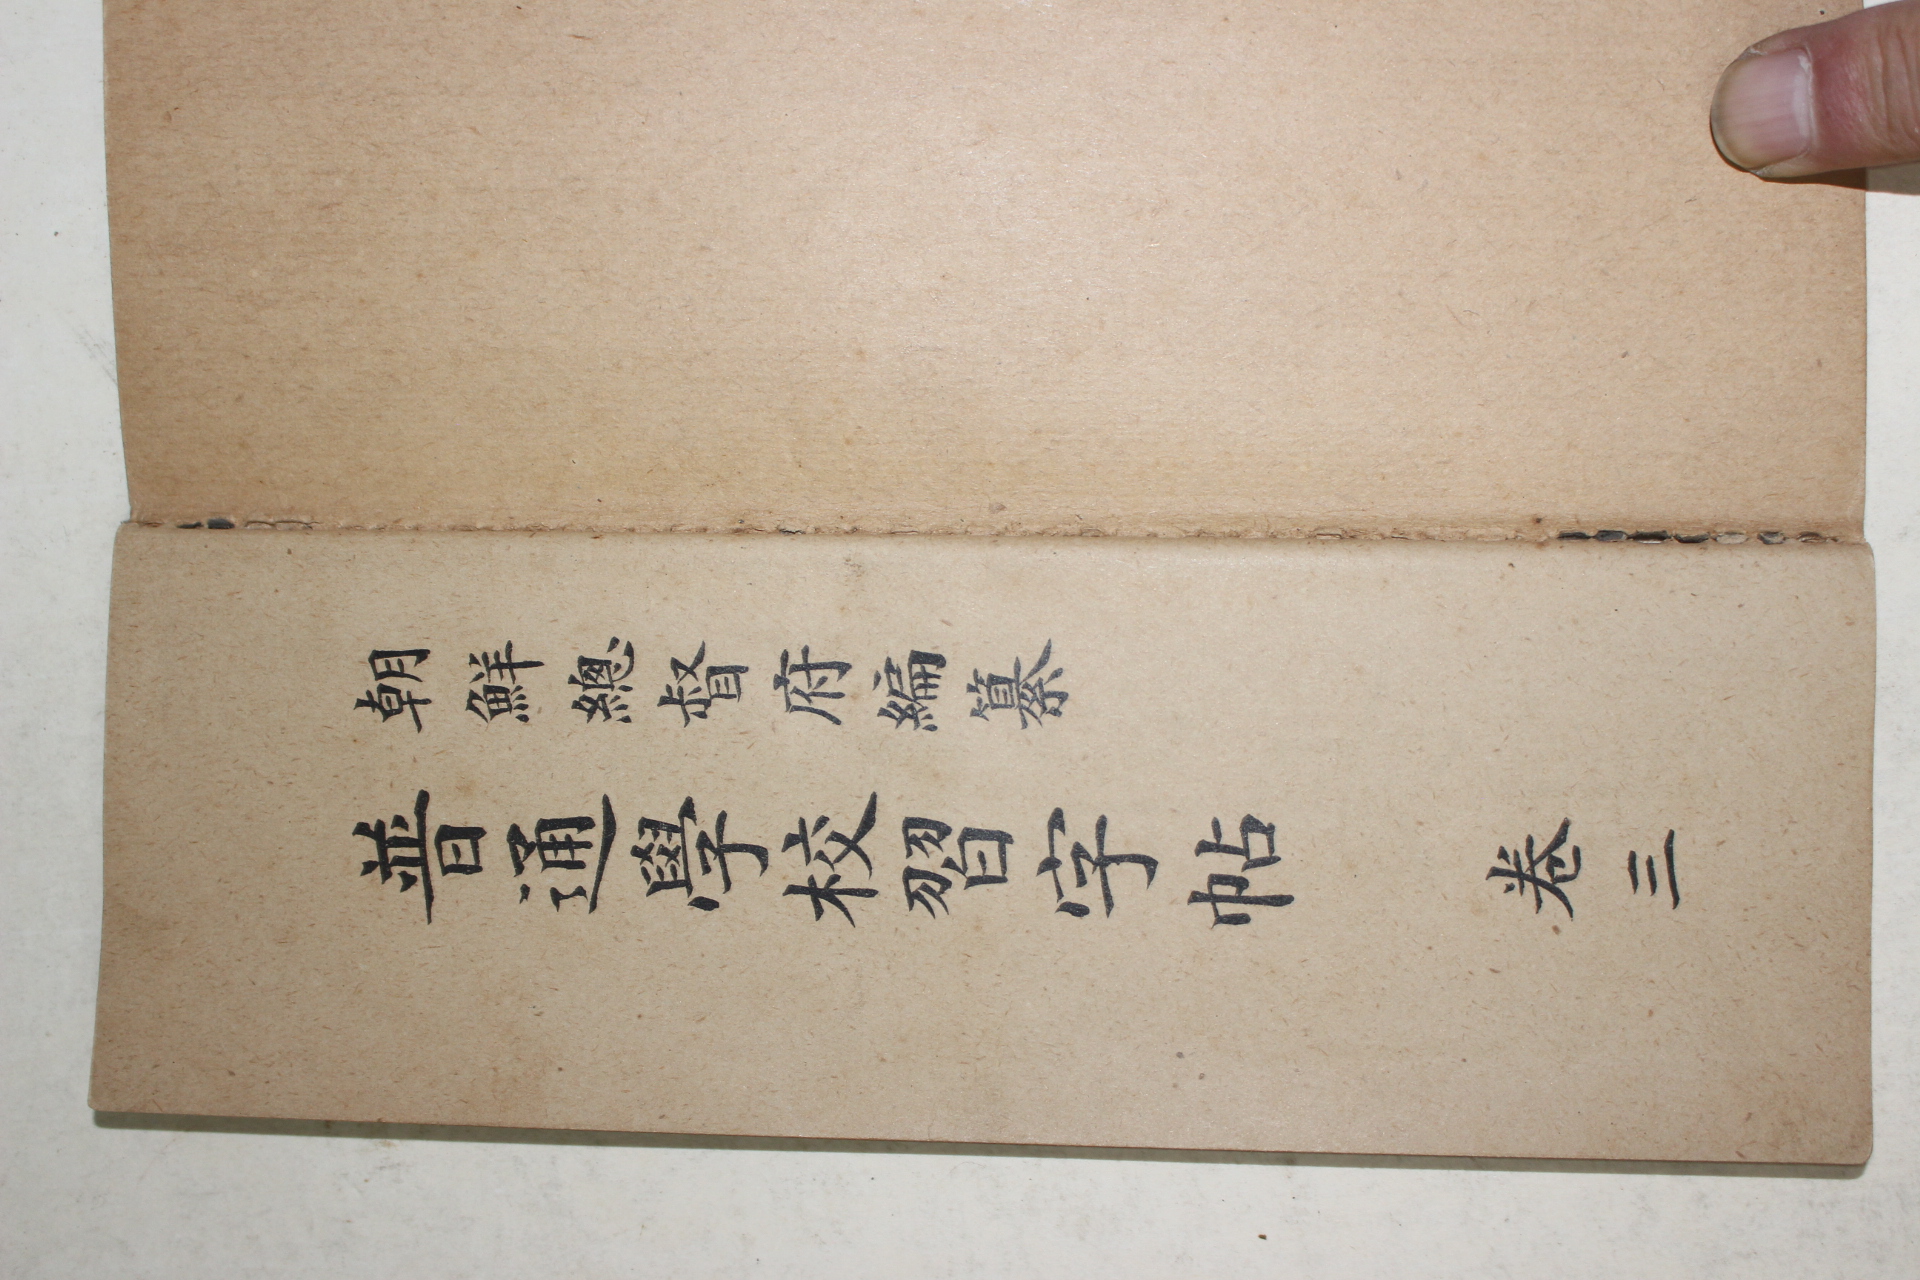 朝鮮總督府編纂
普通學校習字帖 卷三